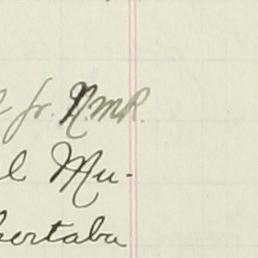 fr. N.M.R.
l Mu-
hertabu